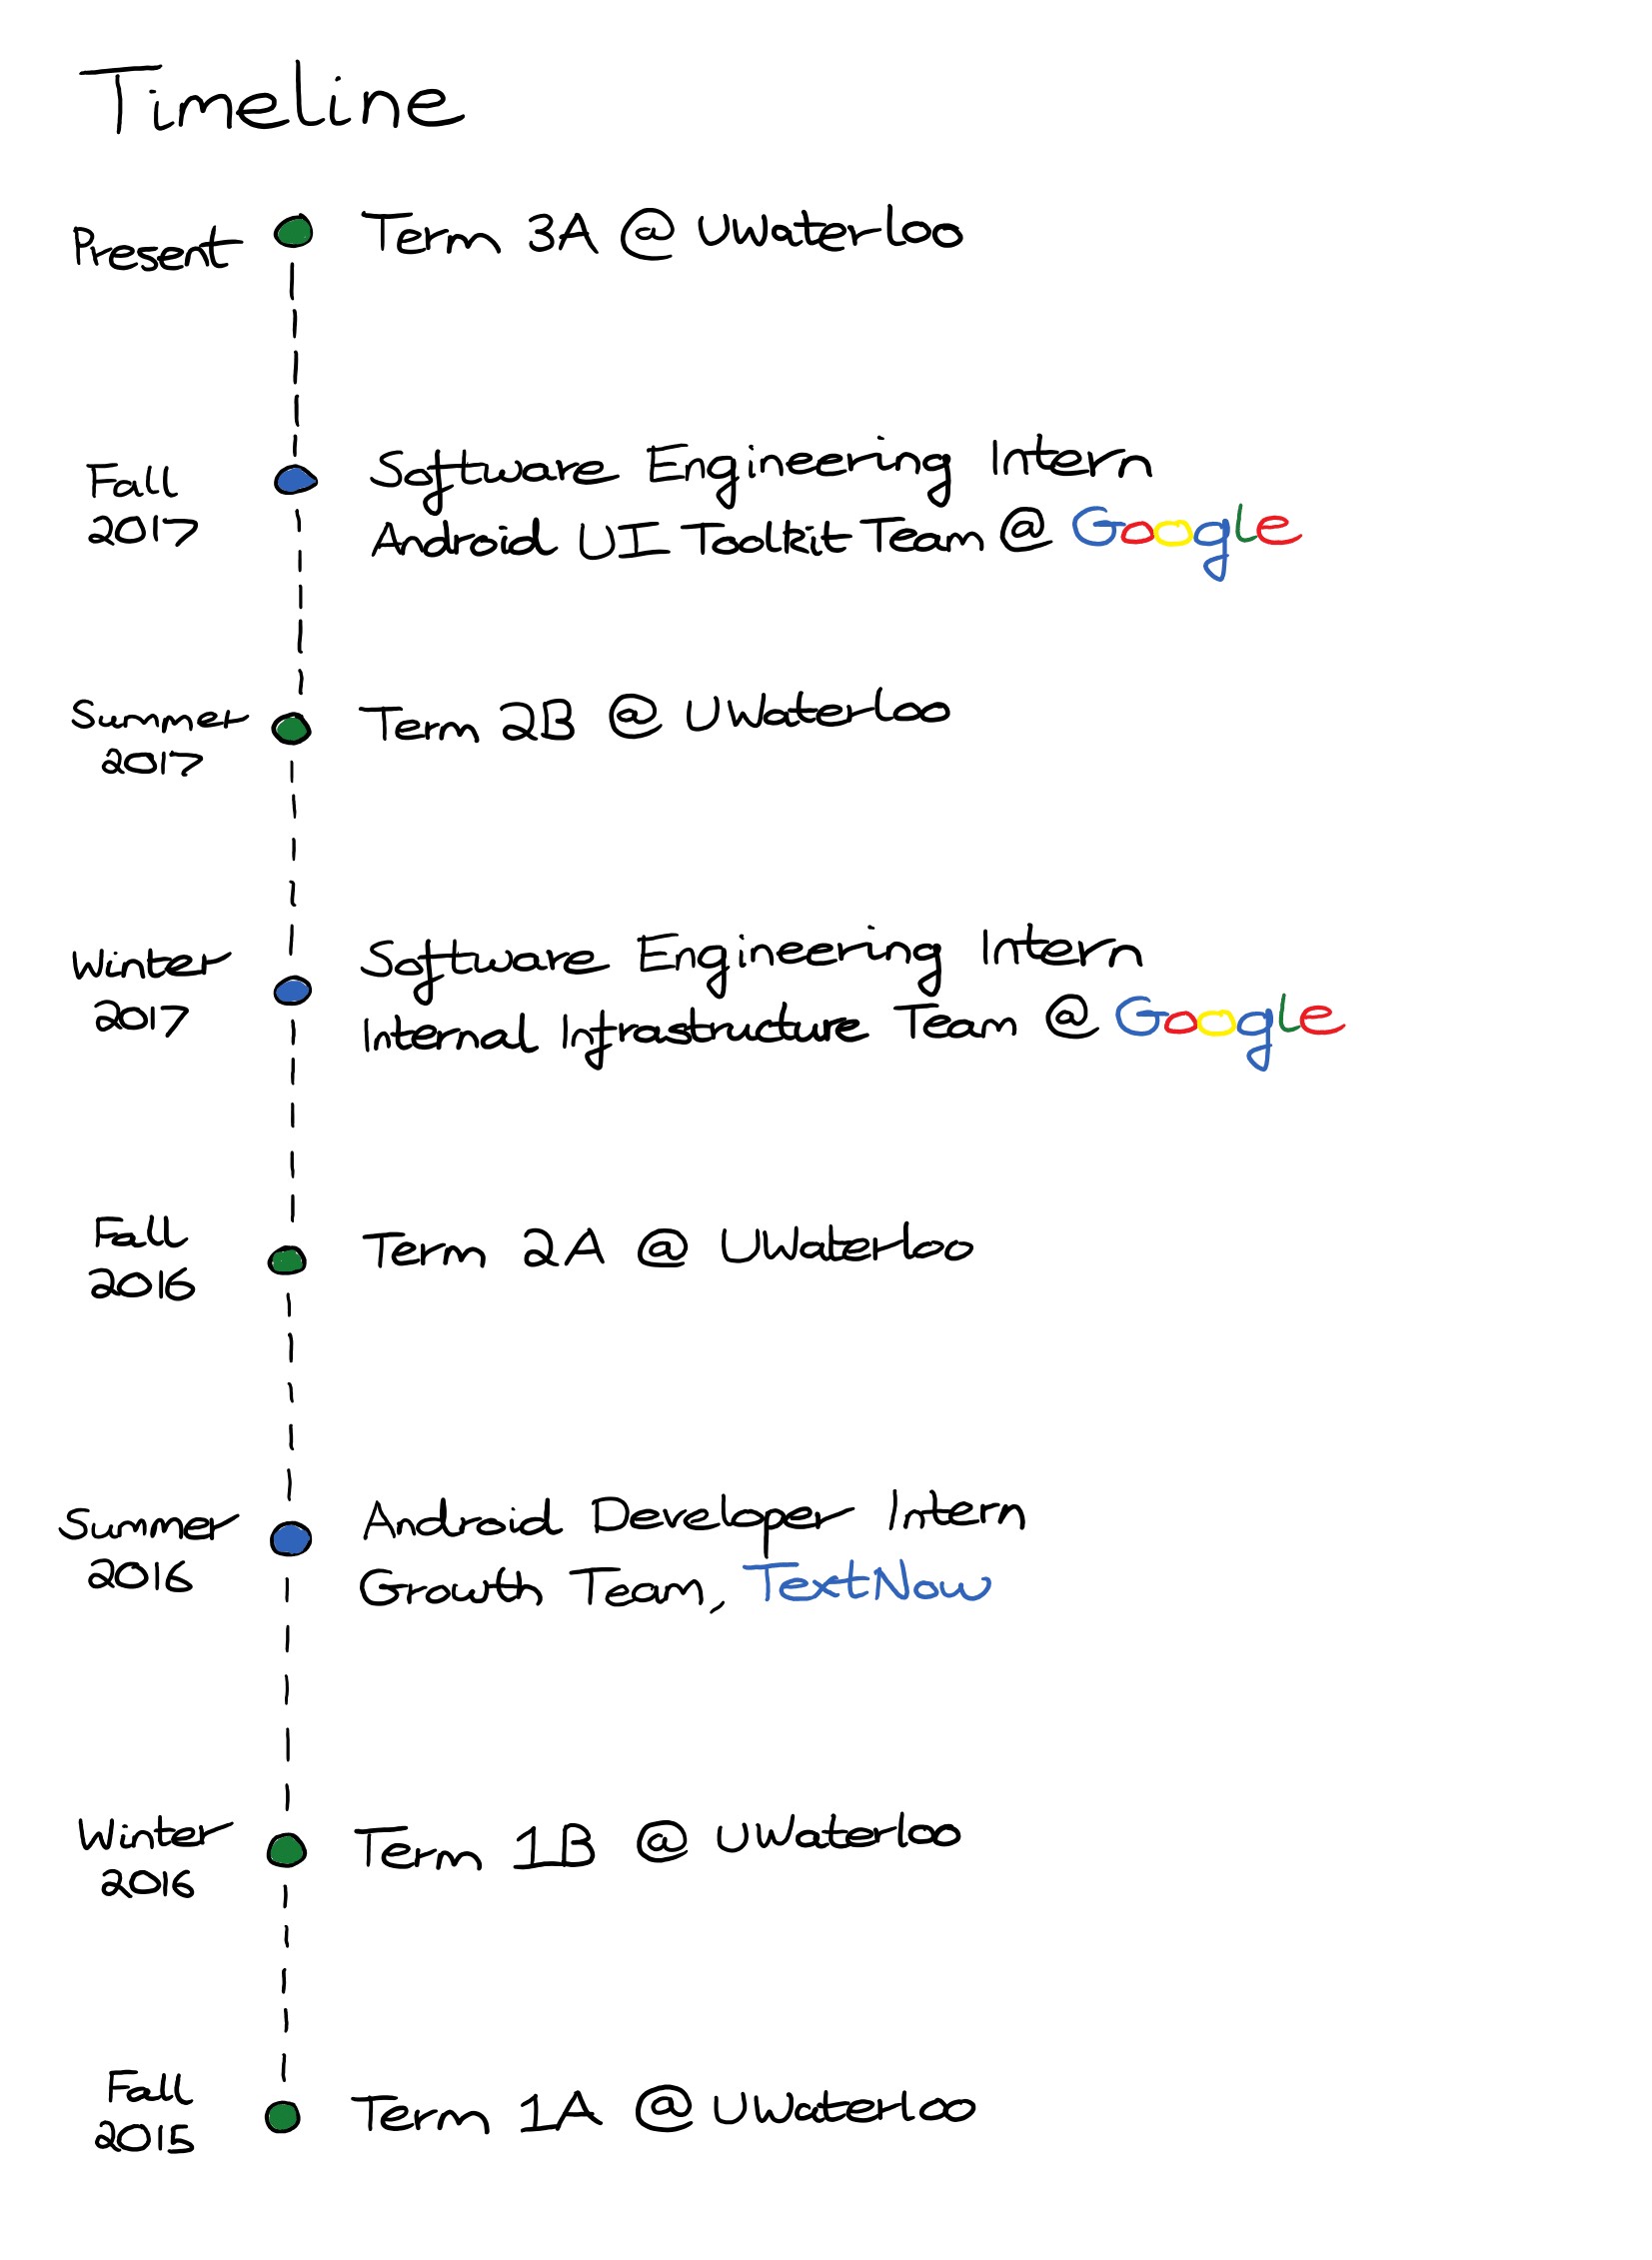 Timeline
Present
Term 3A @ UWaterloo
Fall
2017
Software Engineering Intern
Android UI Toolkit Team @ Google
Summer
2017
Term 2B @ UWaterloo
Winter
2017
Software Engineering Intern
Internal Infrastructure Team @ Google
Fall
2016
Term 2A @ UWaterloo
Summer
2016
Android Developer Intern
Growth Team, TextNow
Winter
2016
Term 1B @ UWaterloo
Fall
2015
Term 1A @ UWaterloo